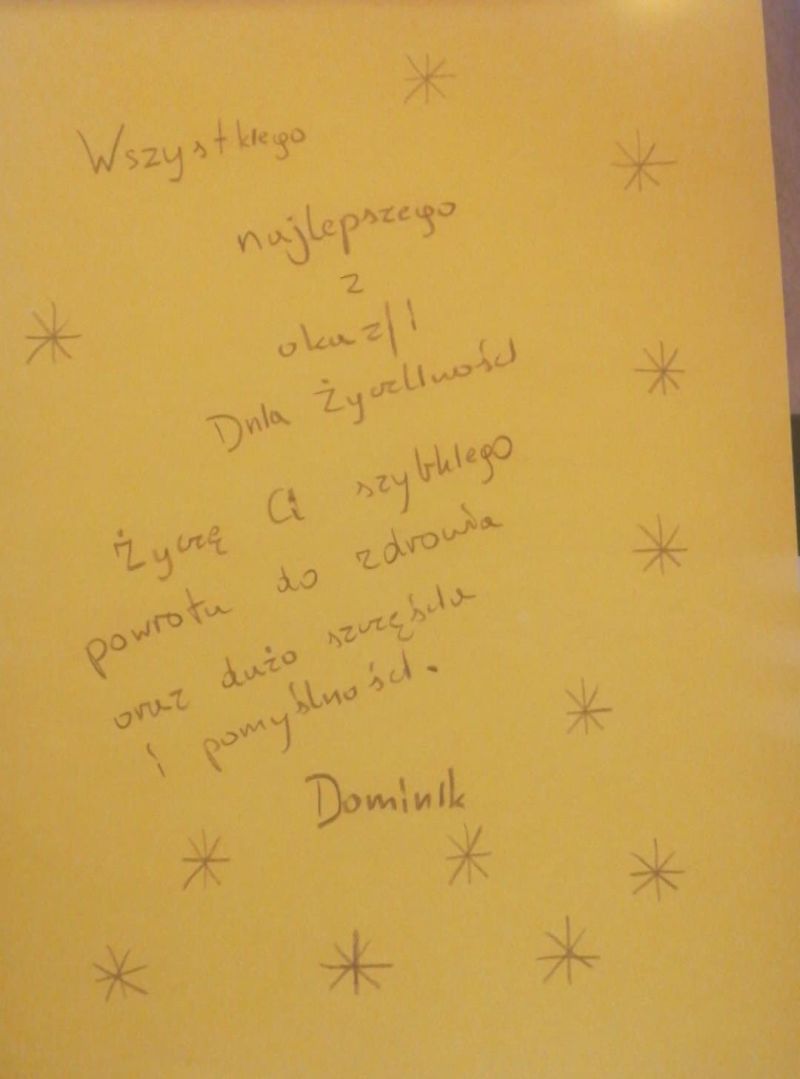 Wszystkiego
najlepszego
z
okazji
Dnia Życzliwości
Życzę Ci szybkiego
powrotu do zdrowia
oraz dużo szczęścia
i pomyślności.
Dominik